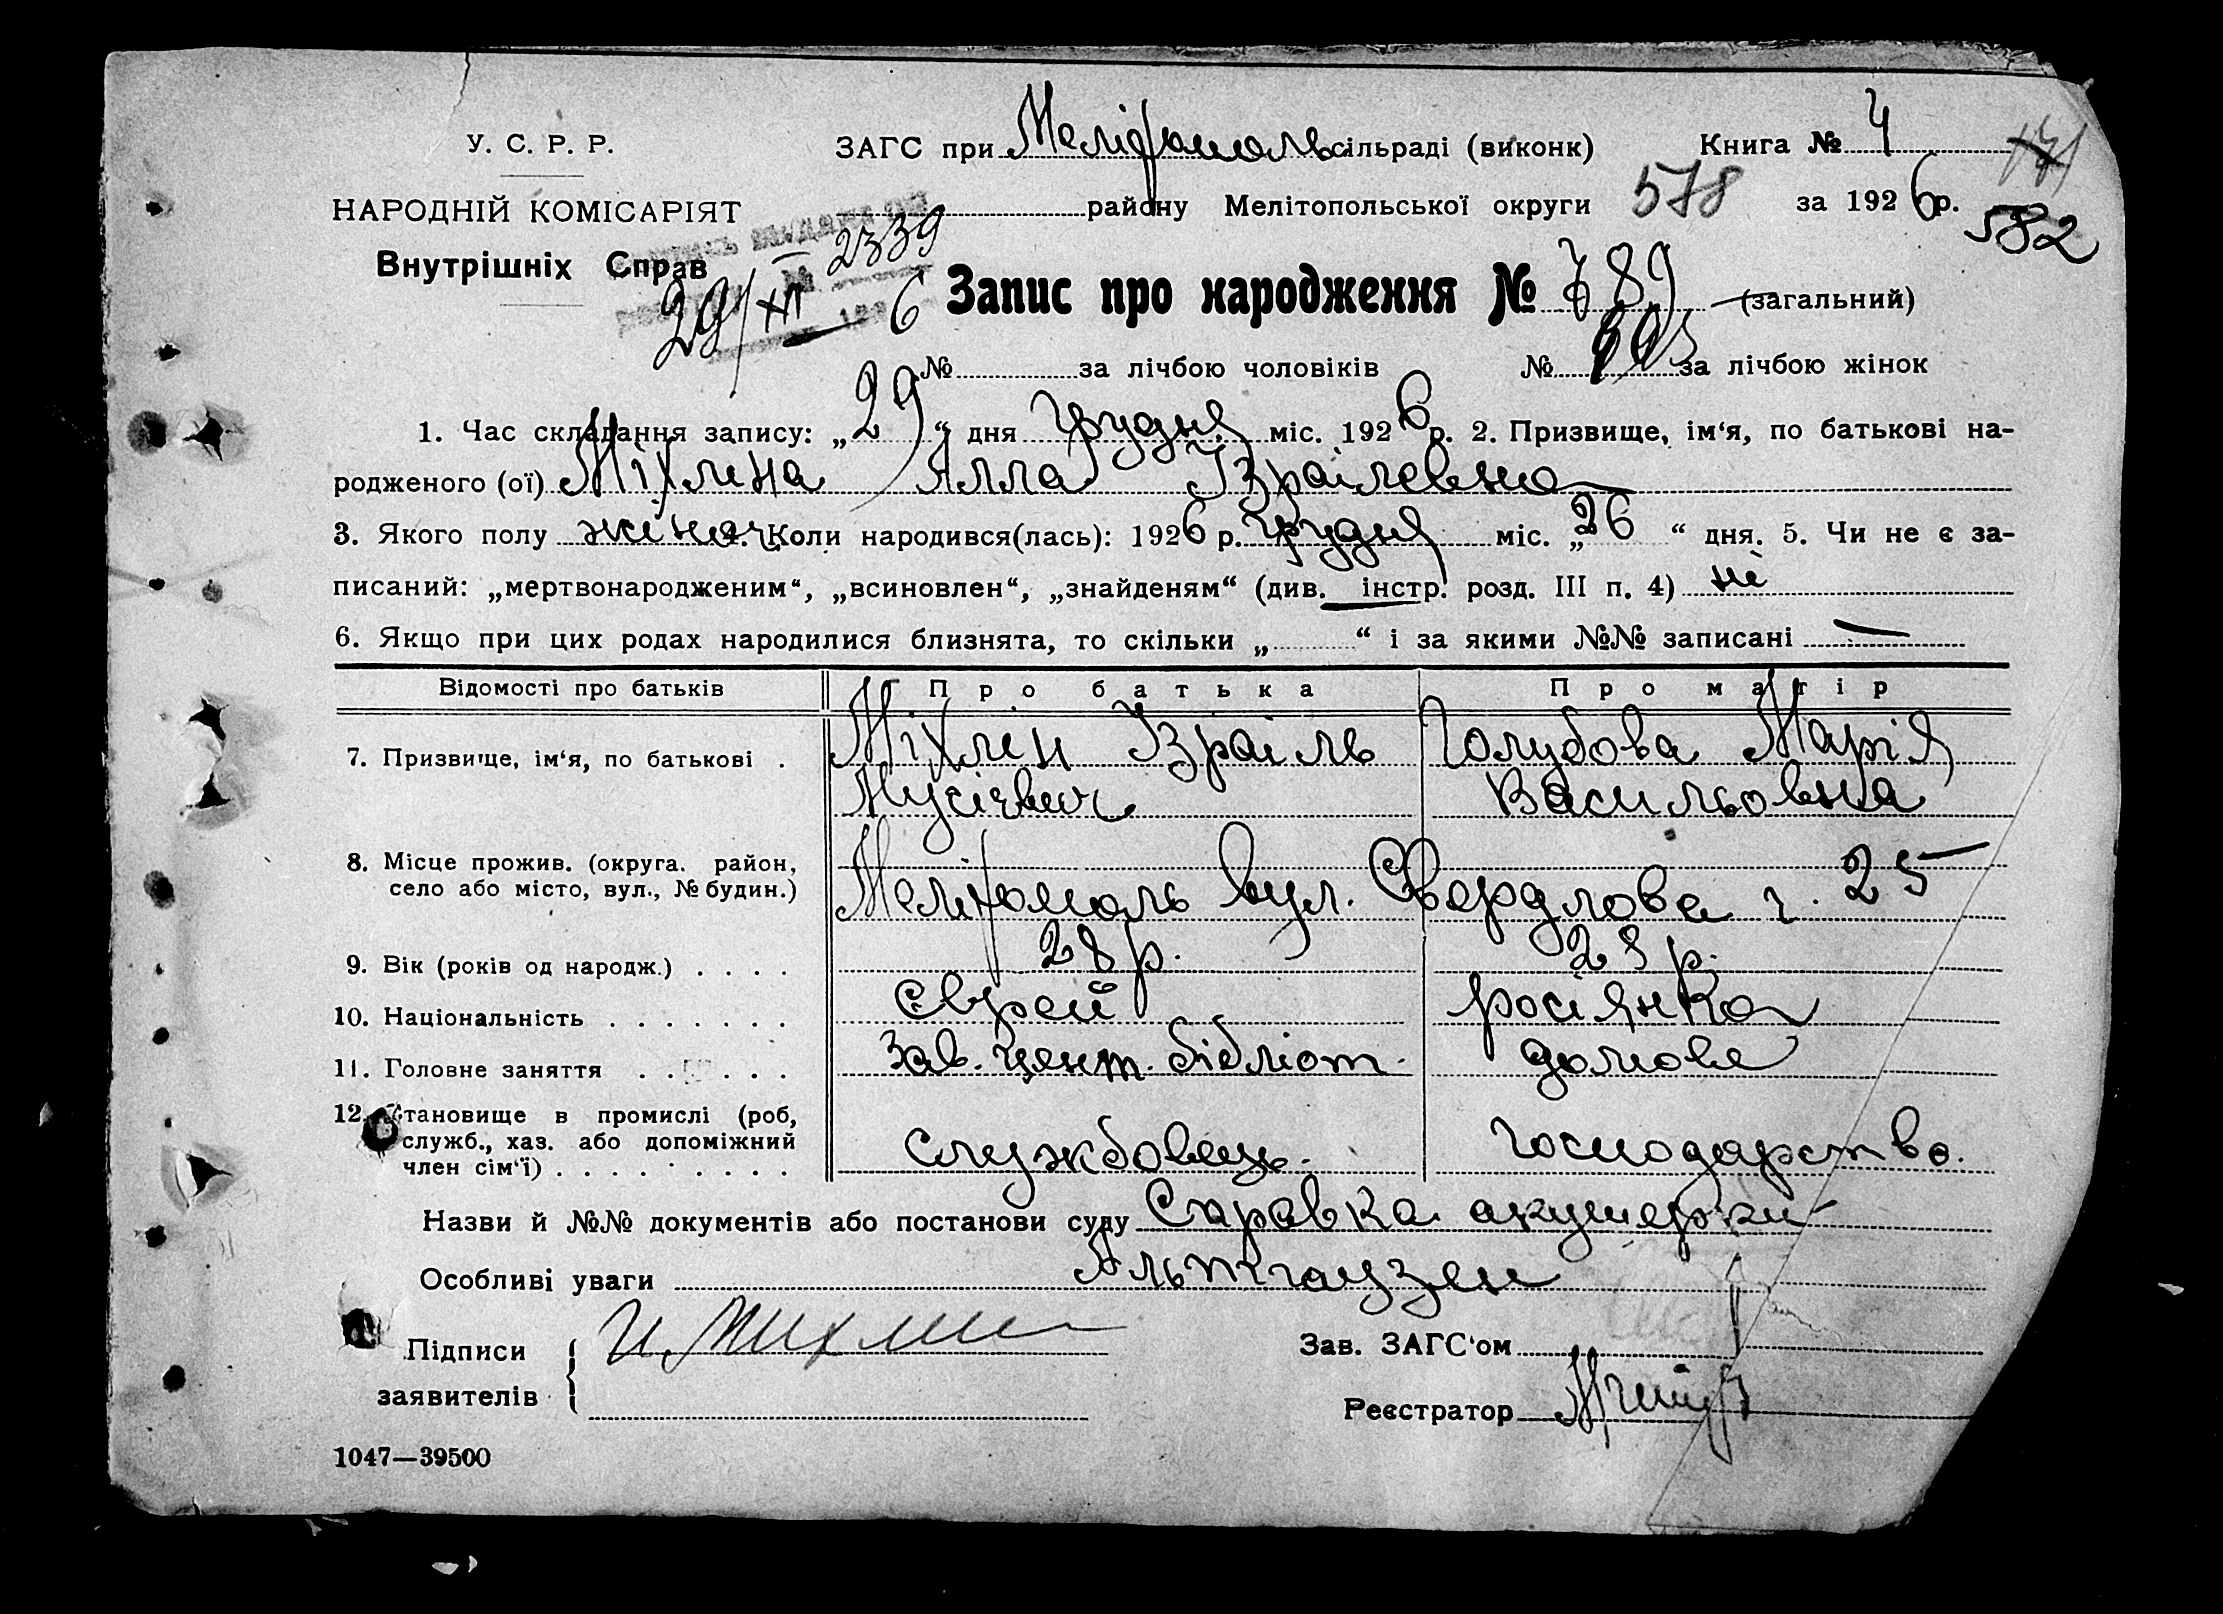 У. С. Р. Р.
ЗАГС при Мелітополь сільраді (виконк)
Книга № 4
171
НАРОДНІЙ КОМІСАРІЯТ
Внутрішніх Справ
району Мелітопольської округи
578
за 1926 р.
582
2339
29/XII 6
Запис про народження № 789 (загальний)
№ за лічбою чоловіків № за лічбою жінок
1. Час складання запису: „29“ дня грудня міс. 1926 р. 2. Призвище, ім‘я, по батькові на-
родженого (ої) Міхлина Алла Ізраілевна
3. Якого полу жіноч. 4. Коли народився(лась): 1926 р. грудня міс. „26“ дня. 5. Чи не є за-
писаний: „мертвонародженим“, „всиновлен“, „знайденям“ (див. інстр. розд. III п. 4) ні
6. Якщо при цих родах народилися близнята, то скільки „ “ і за якими №№ записані —
Відомості про батьків Про батька Про матір
7. Призвище, ім‘я, по батькові . Міхлин Ізраіль Голубова Марія
Мусієвич Васильовна
8. Місце прожив. (округа. район,
село або місто, вул., № будин.) Мелітополь вул. Свердлова ч. 25
9. Вік (років од народж.) . . . . 28 р. 23 р.
10. Національність . . . . . . . Єврей росіянка
11. Головне заняття . . . . . Зав. цент. бібліот. домове
12. Становище в промислі (роб,
служб., хаз. або допоміжний
член сім‘ї) . . . . . . . . . службовець. господарство.
Назви й №№ документів або постанови суду Справка акушерки
Особливі уваги Альтгаузен
Підписи
заявителів
И Михлин
Зав. ЗАГС‘ом
Реєстратор
1047—39500